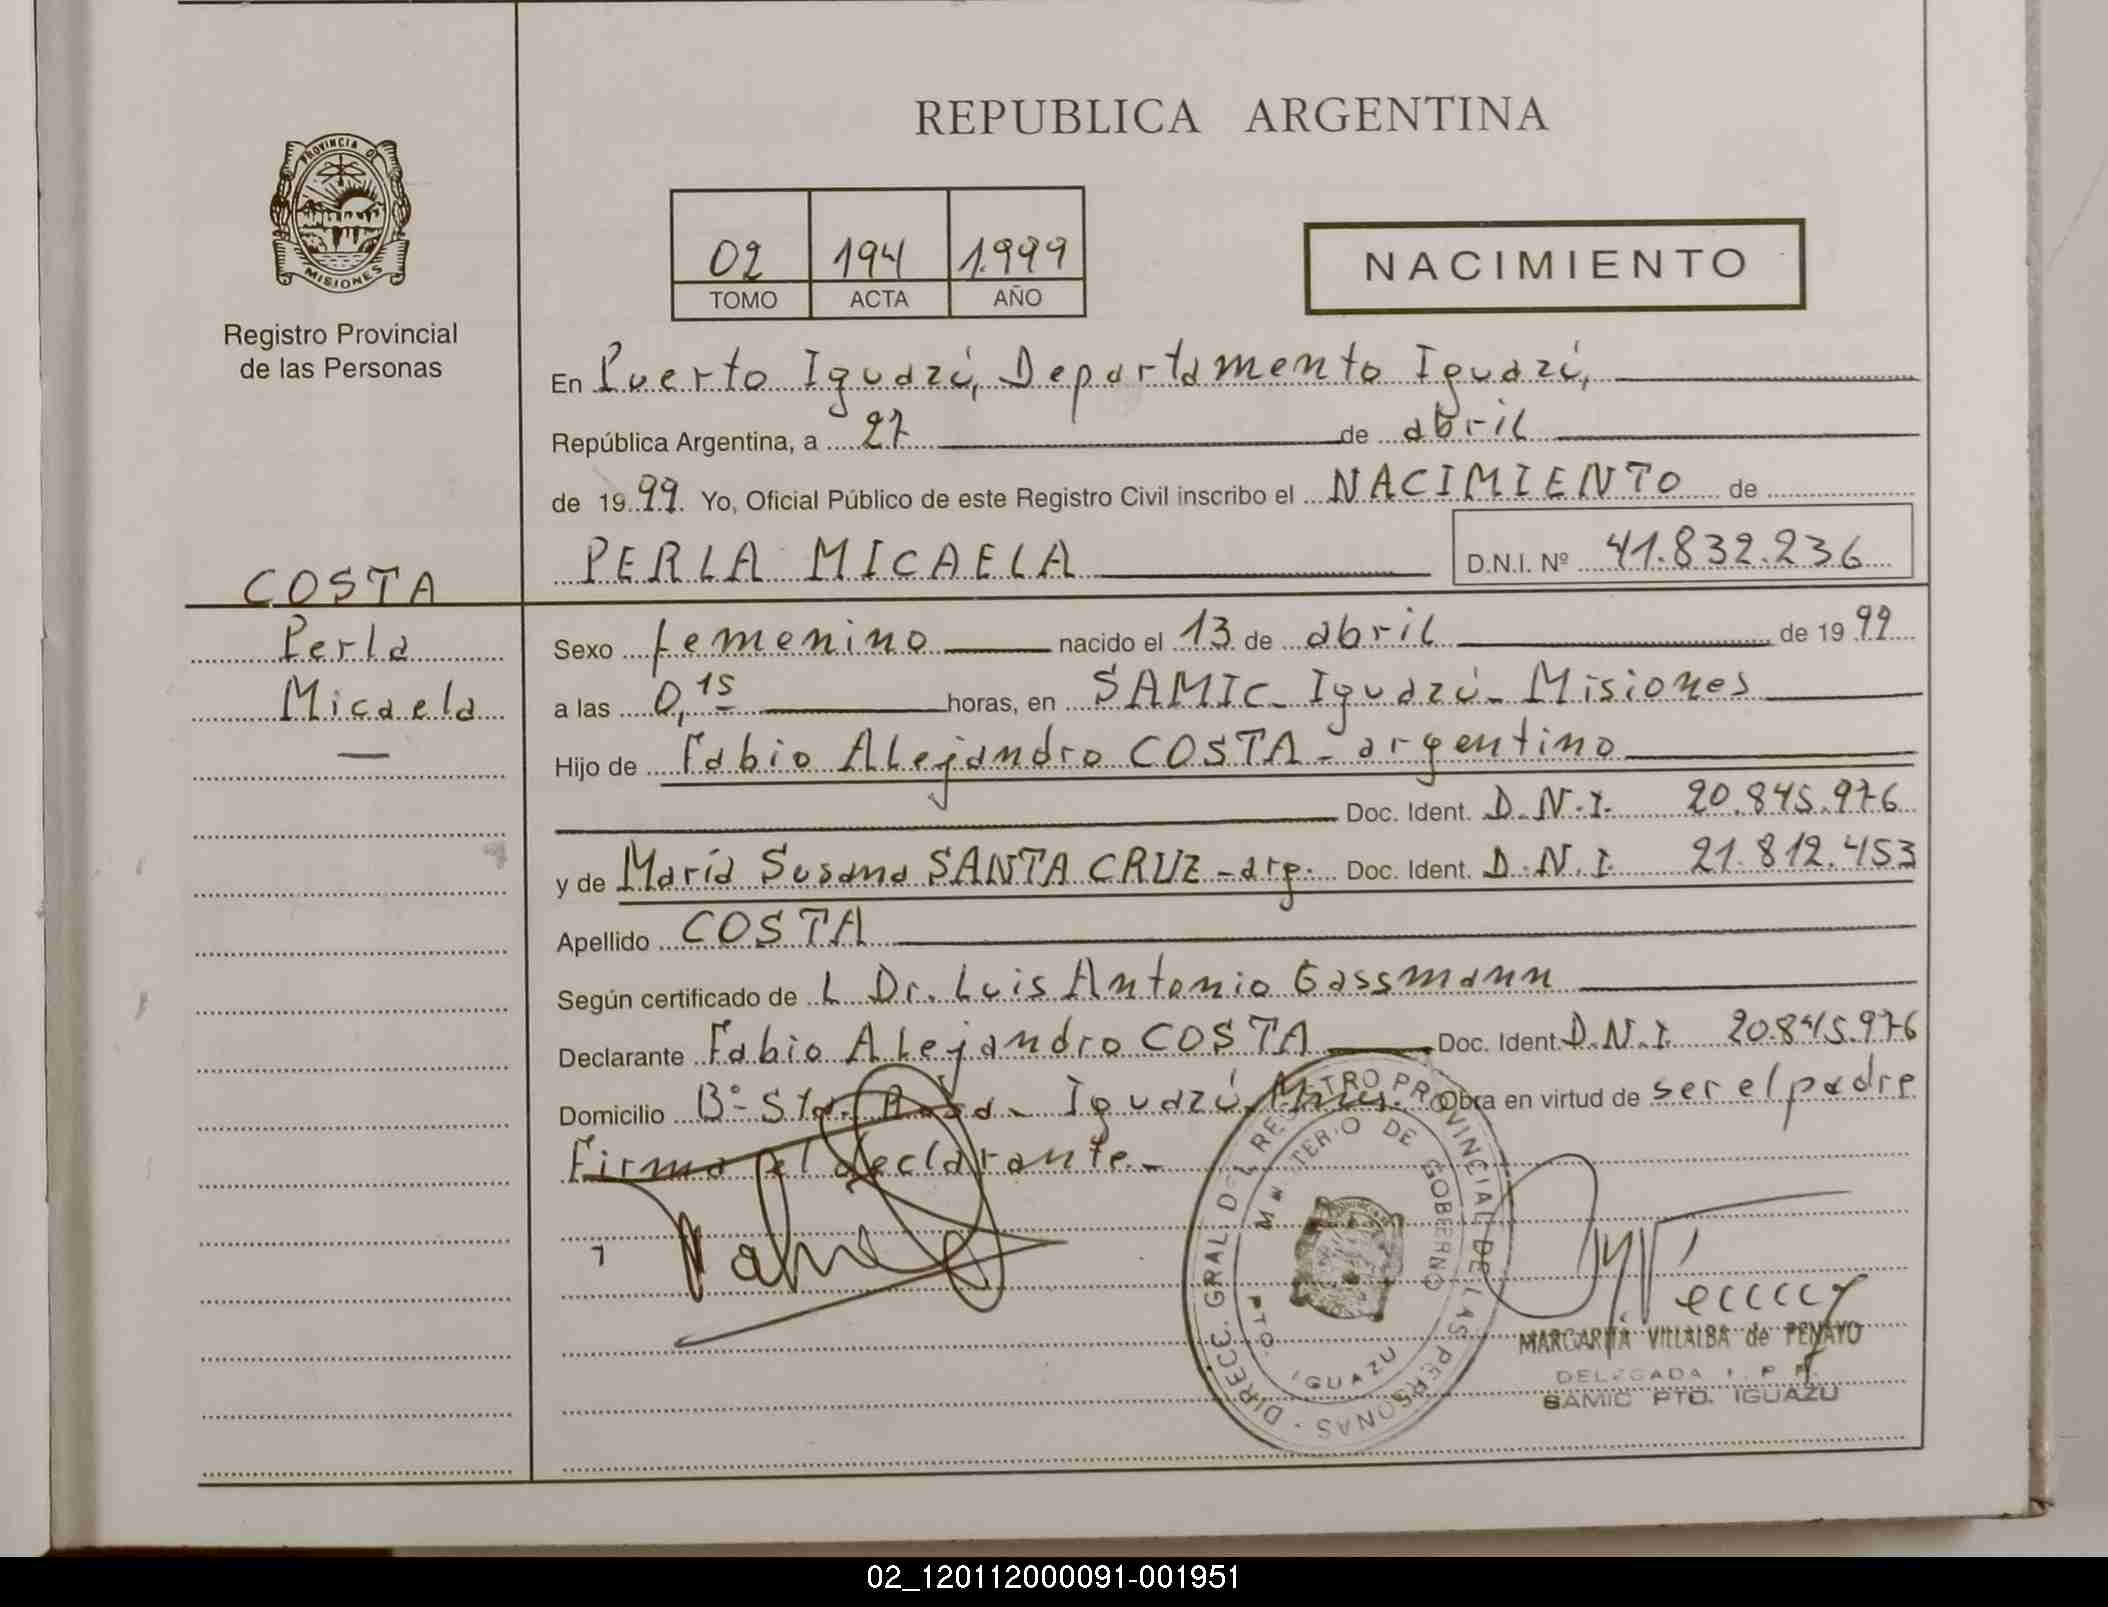 REPUBLICA ARGENTINA
PROVINCIA DE
MISIONES
Registro Provincial
de las Personas
02 194 1.999
TOMO ACTA AÑO
NACIMIENTO
En Puerto Iguazú, Departamento Iguazú,
República Argentina, a 27 de abril
de 1999. Yo, Oficial Público de este Registro Civil inscribo el NACIMIENTO de
PERLA MICAELA D.N.I. Nº 41.832.236
COSTA
Perla
Micaela
Sexo femenino nacido el 13 de abril de 1999
a las 0,15 horas, en SAMIC - Iguazú - Misiones
Hijo de Fabio Alejandro COSTA - argentino
Doc. Ident. D.N.I. 20.845.976
y de María Susana SANTA CRUZ - arg. Doc. Ident. D.N.I. 21.812.453
Apellido COSTA
Según certificado de L Dr. Luis Antonio Gassmann
Declarante Fabio Alejandro COSTA Doc. Ident. D.N.I. 20.845.976
Domicilio Bº Sta. Rosa - Iguazú, Mnes. Obra en virtud de ser el padre
Firma el declarante.-
DIRECC. GRAL. DEL REGISTRO PROVINCIAL DE LAS PERSONAS
MINISTERIO DE GOBERNO
PTO. IGUAZU
MARGARITA VILLALBA de PENAYO
DELEGADA
SAMIC PTO. IGUAZU
02_120112000091-001951